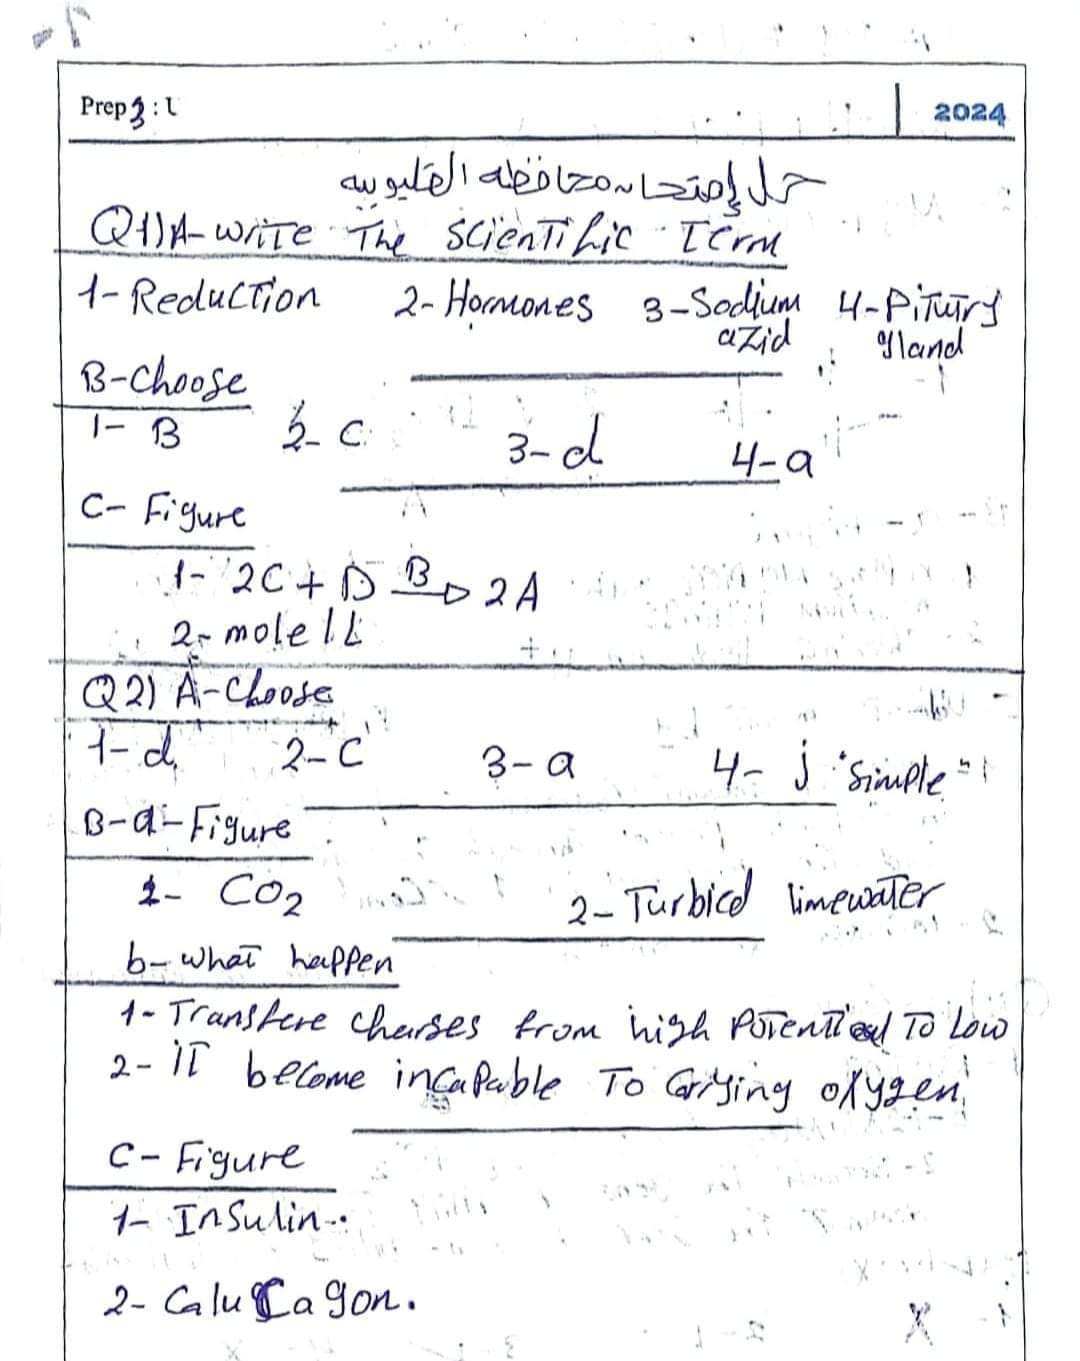 Prep 3 : 2024
حل إمتحان محافظه القليوبيه
Q1) A- write The Scientific Term
1- Reduction 2- Hormones 3- Sodium azid 4- Pitutry gland
B- Choose
1- B 2- C 3- d 4- a
C- Figure
1- 2C + D B→ 2A
2- mole / L
Q2) A- Choose
1- d 2- C 3- a 4- j "Simple"
B- a- Figure
1- CO2 2- Turbicd limewater
b- what happen
1- Transfere charges from high Potential To Low
2- iT become incapable To Carying oxygen.
C- Figure
1- Insulin.
2- Calucagon.